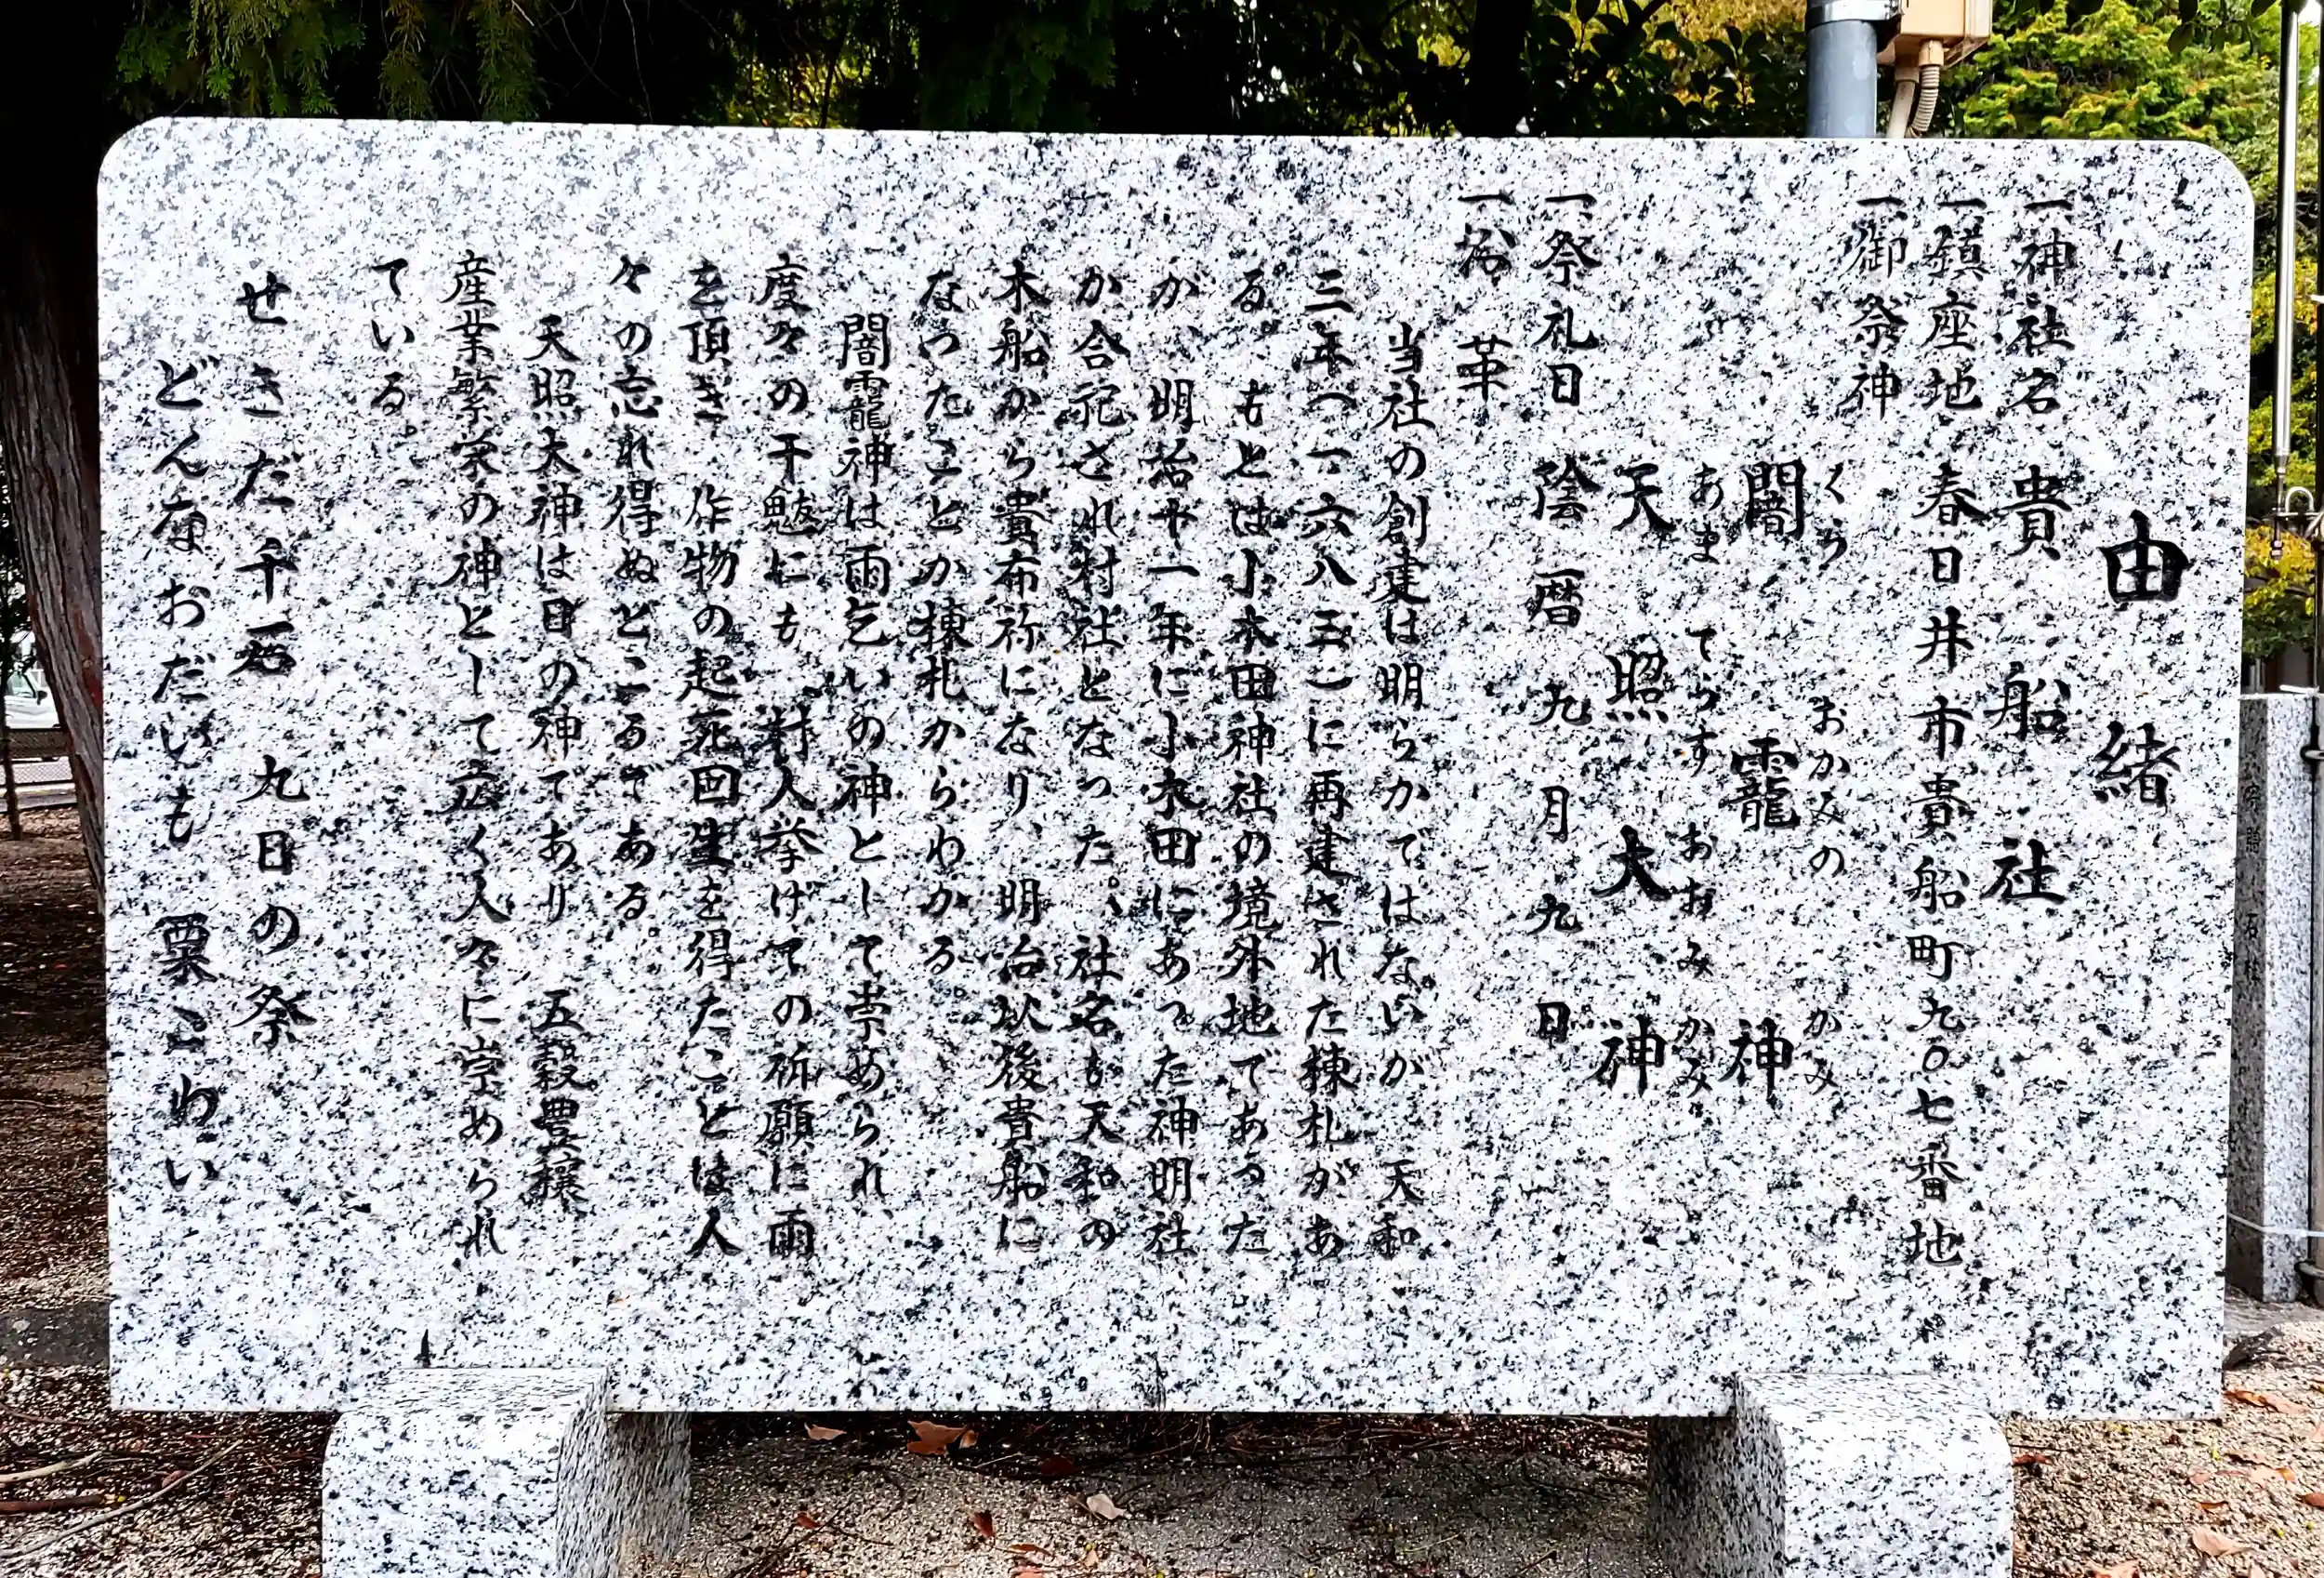 由緒
一神社名 貴船社
一鎮座地 春日井市貴船町九〇七番地
一御祭神
くら おかみの かみ
闇龗神
あま てらす おおみ かみ
天照大神
一祭礼日 陰暦九月九日
一沿革
当社の創建は明らかではないが、天和
三年(一六八三)に再建された棟札があ
る。もとは小木田神社の境外地であった
が、明治十一年に小木田にあった神明社
が合祀され村社となった。社名も天和の
木船から貴布祢になり、明治以後貴船に
なったことが棟札からわかる。
闇龗神は雨乞いの神として崇められ、
度々の干魃にも、村人挙げての祈願に雨
を頂き、作物の起死回生を得たことは人
々の忘れ得ぬところである。
天照大神は日の神であり、五穀豊穣
産業繁栄の神として広く人々に崇められ
ている。
せきだ千石 九日の祭
どんなおだいも 粟こわい